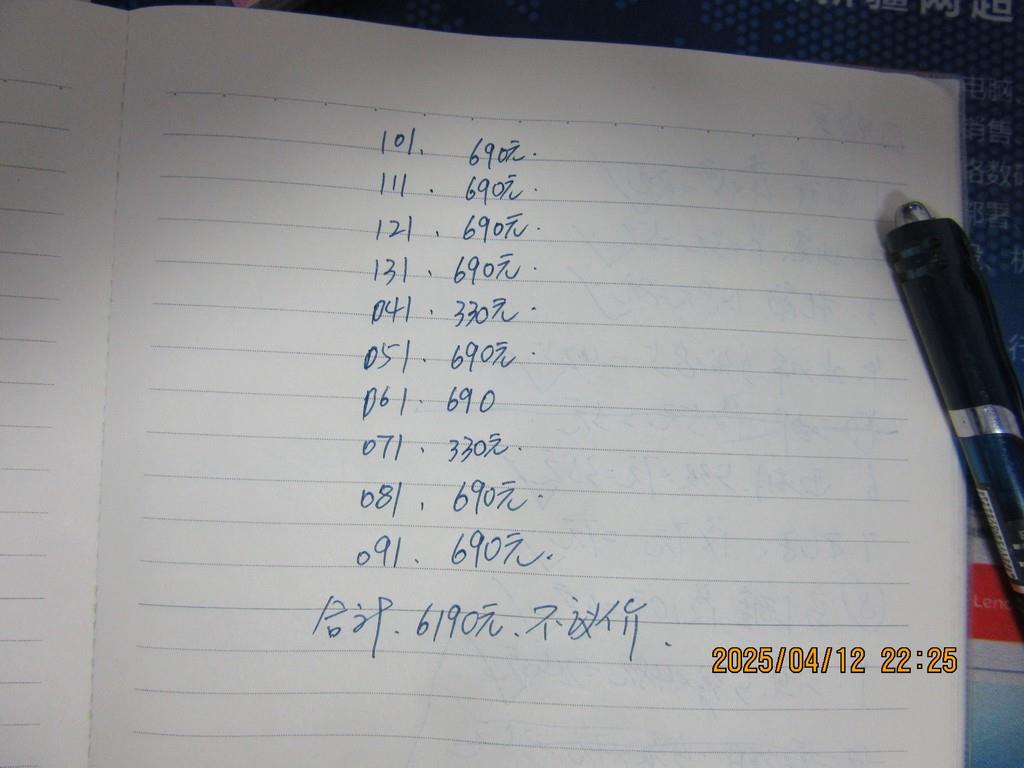 新疆网超
电脑、
销售
络数码
部署
101. 690元.
111. 690元.
121. 690元.
131. 690元.
041. 330元.
051. 690元.
061. 690
071. 330元.
081. 690元.
091. 690元.
合计. 6190元. 不议价.
Leno
2025/04/12 22:25